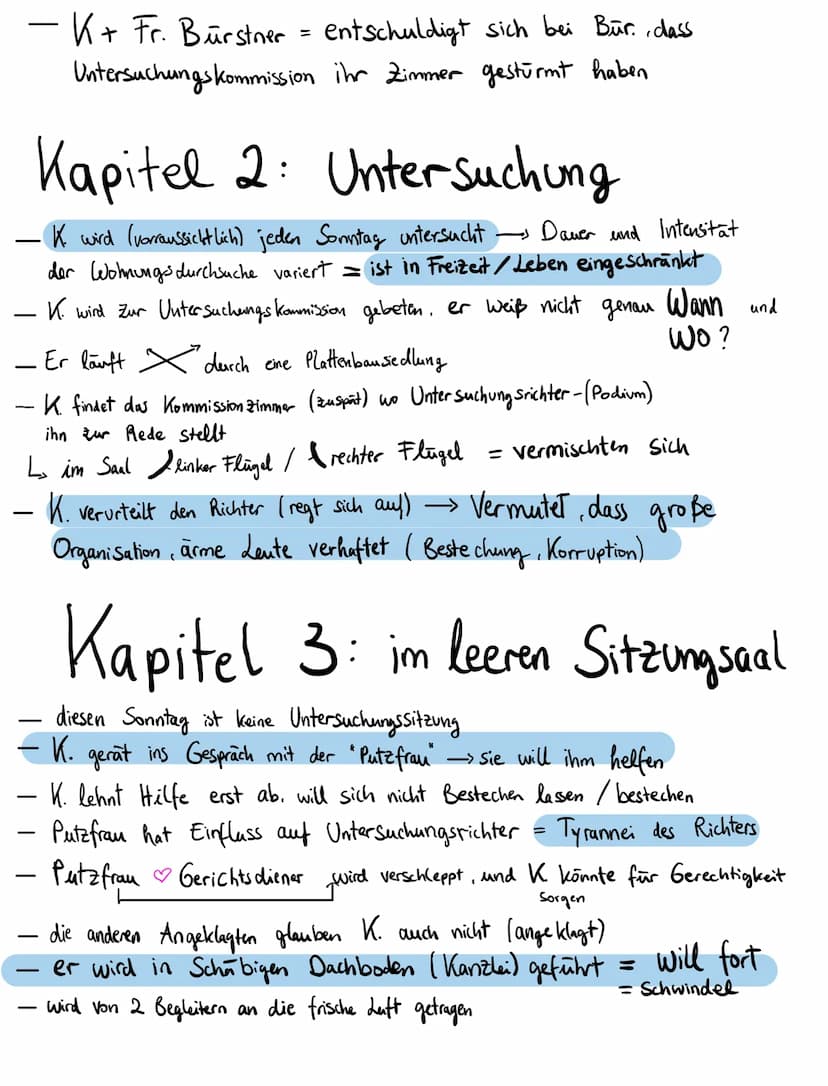 — K + Fr. Bürstner = entschuldigt sich bei Bür. , dass
Untersuchungskommission ihr Zimmer gestürmt haben
Kapitel 2: Untersuchung
— K wird (vorraussichtlich) jeden Sonntag untersucht → Dauer und Intensität
der Wohnungsdurchsuche variert = ist in Freizeit / Leben eingeschränkt
— K. wird zur Untersuchungskommission gebeten, er weiß nicht genau Wann und
Wo?
— Er läuft durch eine Plattenbausiedlung
— K. findet das Kommissionzimmer (zuspät) wo Untersuchungsrichter-(Podium)
ihn zur Rede stellt
↳ im Saal linker Flügel / rechter Flügel = vermischten sich
— K. verurteilt den Richter (regt sich auf) → Vermutet, dass große
Organisation, ärme Leute verhaftet (Bestechung, Korruption)
Kapitel 3: im leeren Sitzungsaal
— diesen Sonntag ist keine Untersuchungssitzung
— K. gerät ins Gespräch mit der "Putzfrau" → sie will ihm helfen
— K. lehnt Hilfe erst ab, will sich nicht Bestechen lasen / bestechen
— Putzfrau hat Einfluss auf Untersuchungsrichter = Tyrannei des Richters
— Putzfrau ♡ Gerichtsdiener wird verschleppt, und K könnte für Gerechtigkeit
sorgen
— die anderen Angeklagten glauben K. auch nicht (angeklagt)
— er wird in Schäbigen Dachboden (Kanzlei) geführt = will fort
= Schwindel
— wird von 2 Begleitern an die frische Luft getragen